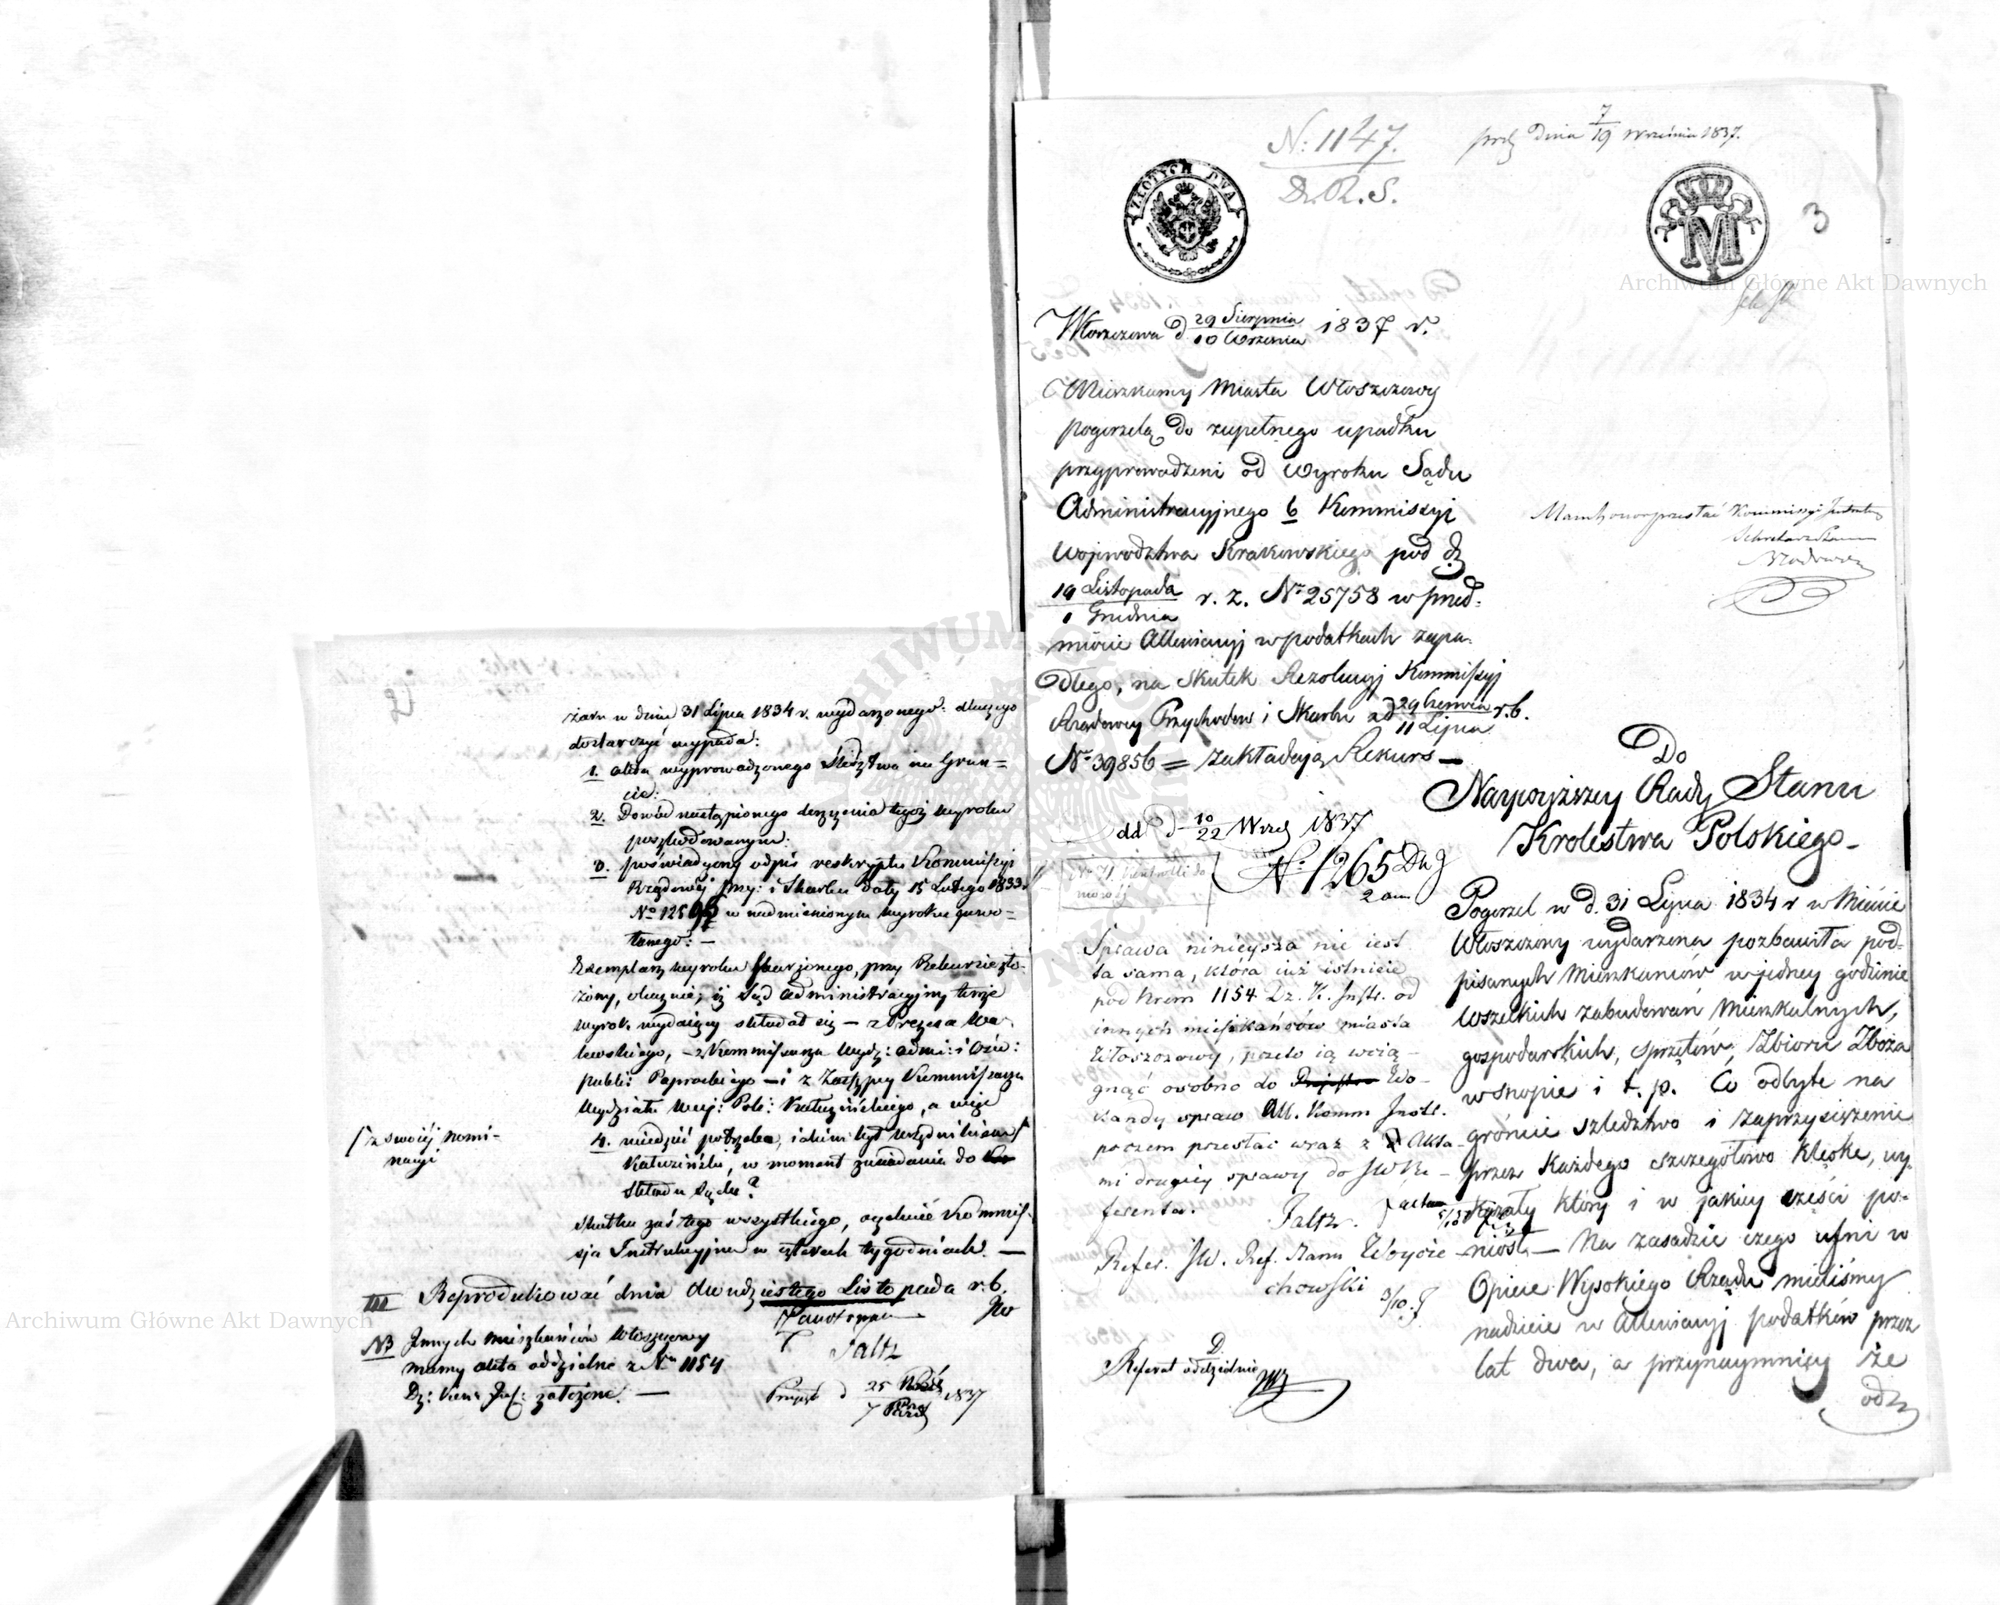 żaru w dniu 31 Lipca 1834 r. wydarzonego: dłuższego
dostarczyć wypada:
1. akta wyprowadzonego śledztwa na Grun=
cie:
2. Dowód nastąpionego doręczenia tegoż wyroku
poszkodowanym:
3. poświadczony odpis reskryptu Kommissyi
Rządowéj Przy: i Skarbu daty 15 Lutego 1833 r
No 12595 w nadmienionym wyroku powo-
łanego: —
Exemplarz wyroku skarżonego, przy Rekursie zło-
żony, okazuie, iż Sąd administracyjny tenże
wyrok wydaiący składał się — z Prezesa Wa-
lewskiego, — z Kommissarza Wydz: admi: i
publi: Paprockiego — i z Zastępcy Kommissarza
Wydziału Woj: Poli: Kałuzińskiego, a więc
4. wiedzieć potrzeba, iakim był urzędnikiem
/ z swoiéj nomi-
nacyi
Kałuziński, w moment zasiadania do
składu Sądu?
Skutku zaś tego wszystkiego, oczekuie Kommis-
sja Instrukcyjna w czterech tygodniach. —
III Reprodukować dnia dwudziestego Listopada r. b.
NB Innych mieszkańców Włoszczowy
mamy akta oddzielne z Nru 1154
Dz: założone. —
Faltz
25
7
1837
N: 1147.
D. R. S.
dnia 7/19 Września 1837.
ZŁOTYCH DWA
M
3
Włoszczowa d 29 Sierpnia
10 Września 1837 r.
Mieszkańcy Miasta Włoszczowy
pogorzelą do zupełnego upadku
przyprowadzeni od wyroku Sądu
Administracyjnego b Kommissyi
Województwa Krakowskiego pod d.
19 Listopada
1 Grudnia r. z. Nr 25758 w przed-
miocie Allewiacyj w podatkach zapa-
dłego, na skutek Rezolucyj Kommissyj
Rządowey Przychodów i Skarbu z d 29 Czerwca
11 Lipca r. b.
Nr 39856 = zakładają Rekurs —
Kommissyi
Do
Naywyższey Rady Stanu
Królestwa Polskiego —
dd d 10/22 Wrześ 1837
N: 1265
Sprawa niniejsza nie iest
ta sama, która iuż istnieie
pod Nrem 1154 Dz. K. Instr. od
innych mieszkańców miasta
Włoszczowy, przeto ią wcią-
gnąć osobno do Wo-
kandy spraw Kom Instr.
poczem przesłać wraz z Akta-
mi drugiey sprawy do JW Re-
ferenta.
Faltz.
Refer. JW. Ref. Stanu Woycie
chowski 3/10.
D.
Referat oddzielnie
Pogorzel w d. 31 Lipca 1834 r w Mieście
Włoszczowy wydarzona pozbawiła pod-
pisanych Mieszkańców w jedney godzinie
wszelkich zabudowań Mieszkalnych,
gospodarskich, sprzętów, Zbioru Zboża
w snopie i t. p. Co odbyte na
gróncie szledztwo i zaprzysiężenie
przez Każdego szczegółowo klęskę, wy-
kazały który i w jakiey części po-
niósł — Na zasadzie czego ufni w
Opiece Wysokiego Rządu mieliśmy
nadzieie w Allewiacyj podatków przez
lat dwa, a przynaymniey że
od
Archiwum Główne Akt Dawnych
Archiwum Główne Akt Dawnych